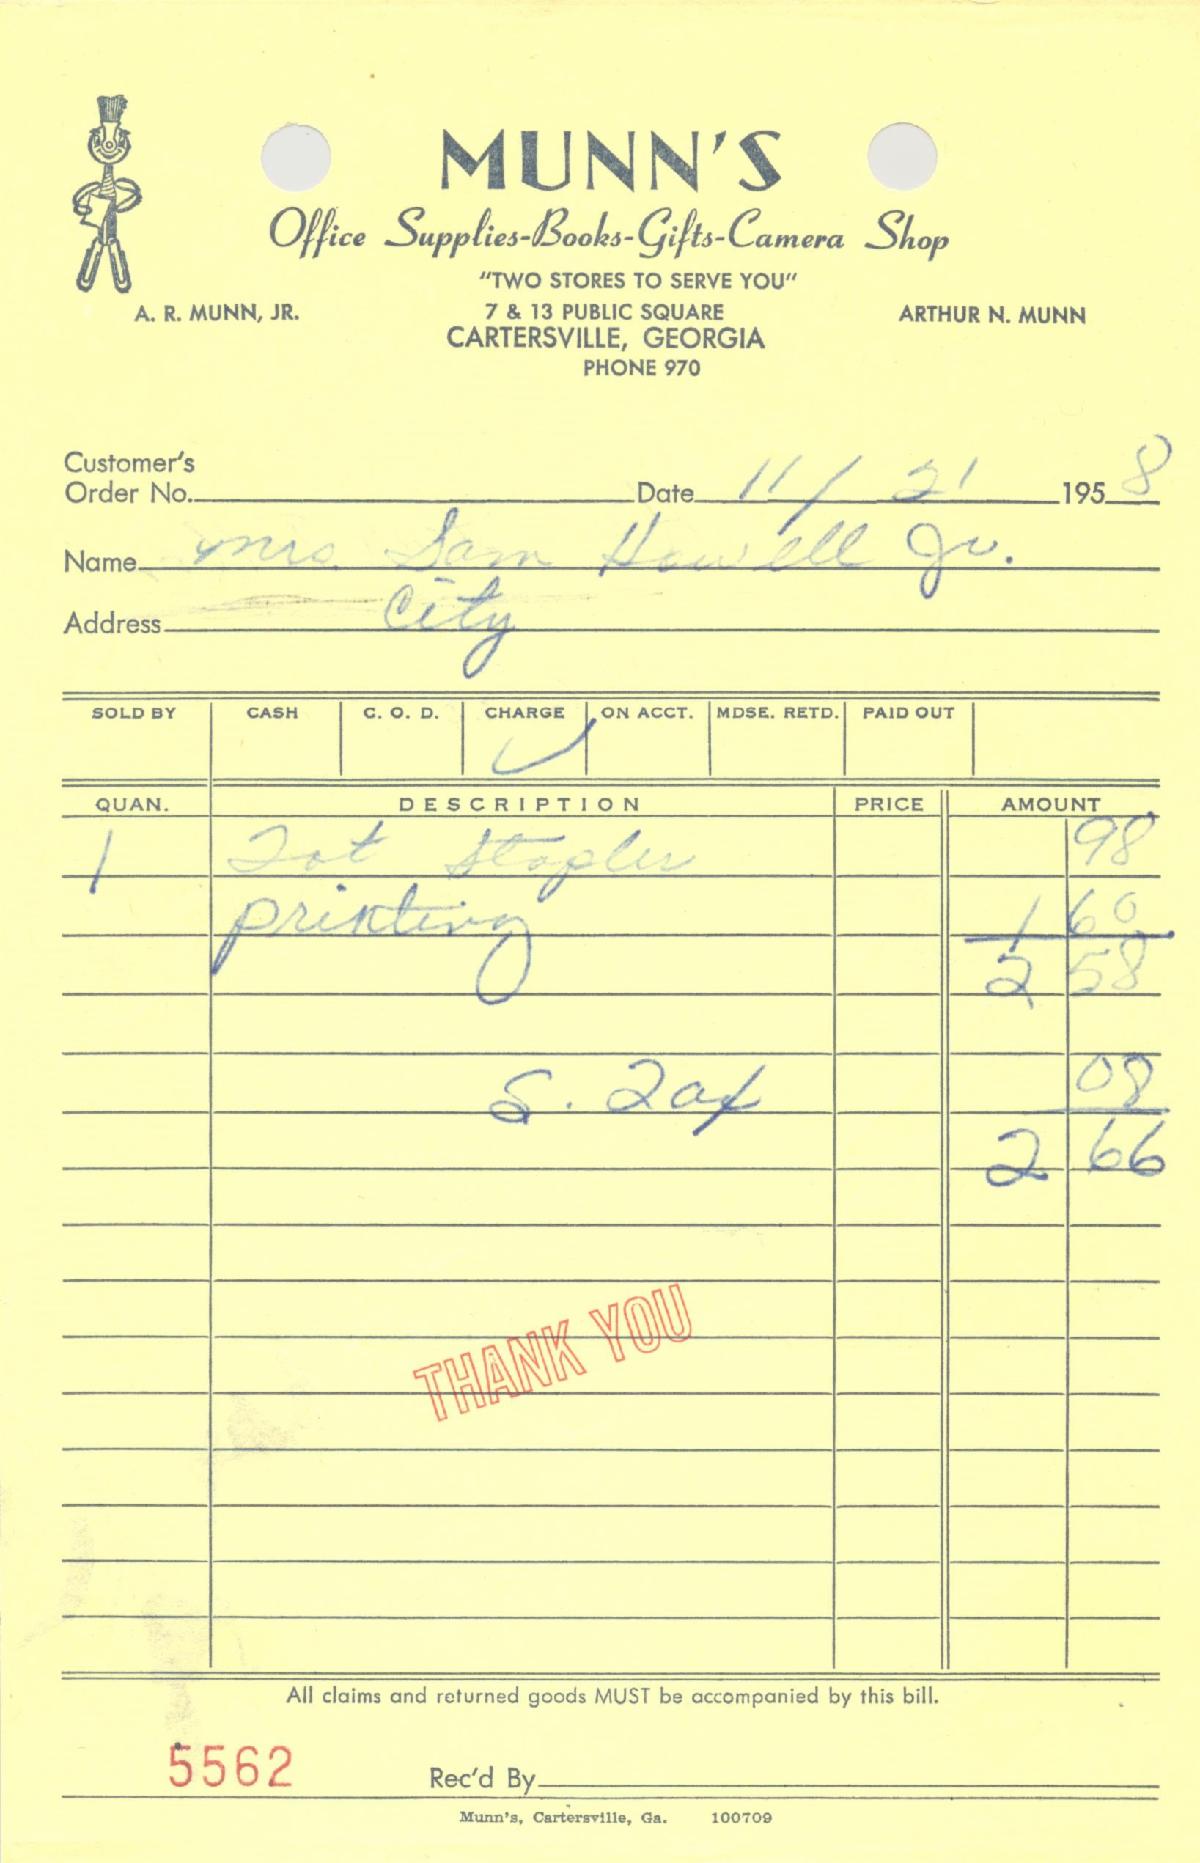 MUNN'S
Office Supplies-Books-Gifts-Camera Shop
"TWO STORES TO SERVE YOU"
A. R. MUNN, JR. 7 & 13 PUBLIC SQUARE ARTHUR N. MUNN
CARTERSVILLE, GEORGIA
PHONE 970
Customer's
Order No. Date 11/21 1958
Name Mrs. Sam Howell Jr.
Address City
SOLD BY CASH C. O. D. CHARGE ON ACCT. MDSE. RETD. PAID OUT
QUAN. DESCRIPTION PRICE AMOUNT
1 Tot Stapler 98
printing 1 60
2 58
S. Tax 08
2 66
THANK YOU
All claims and returned goods MUST be accompanied by this bill.
5562 Rec'd By
Munn's, Cartersville, Ga. 100709